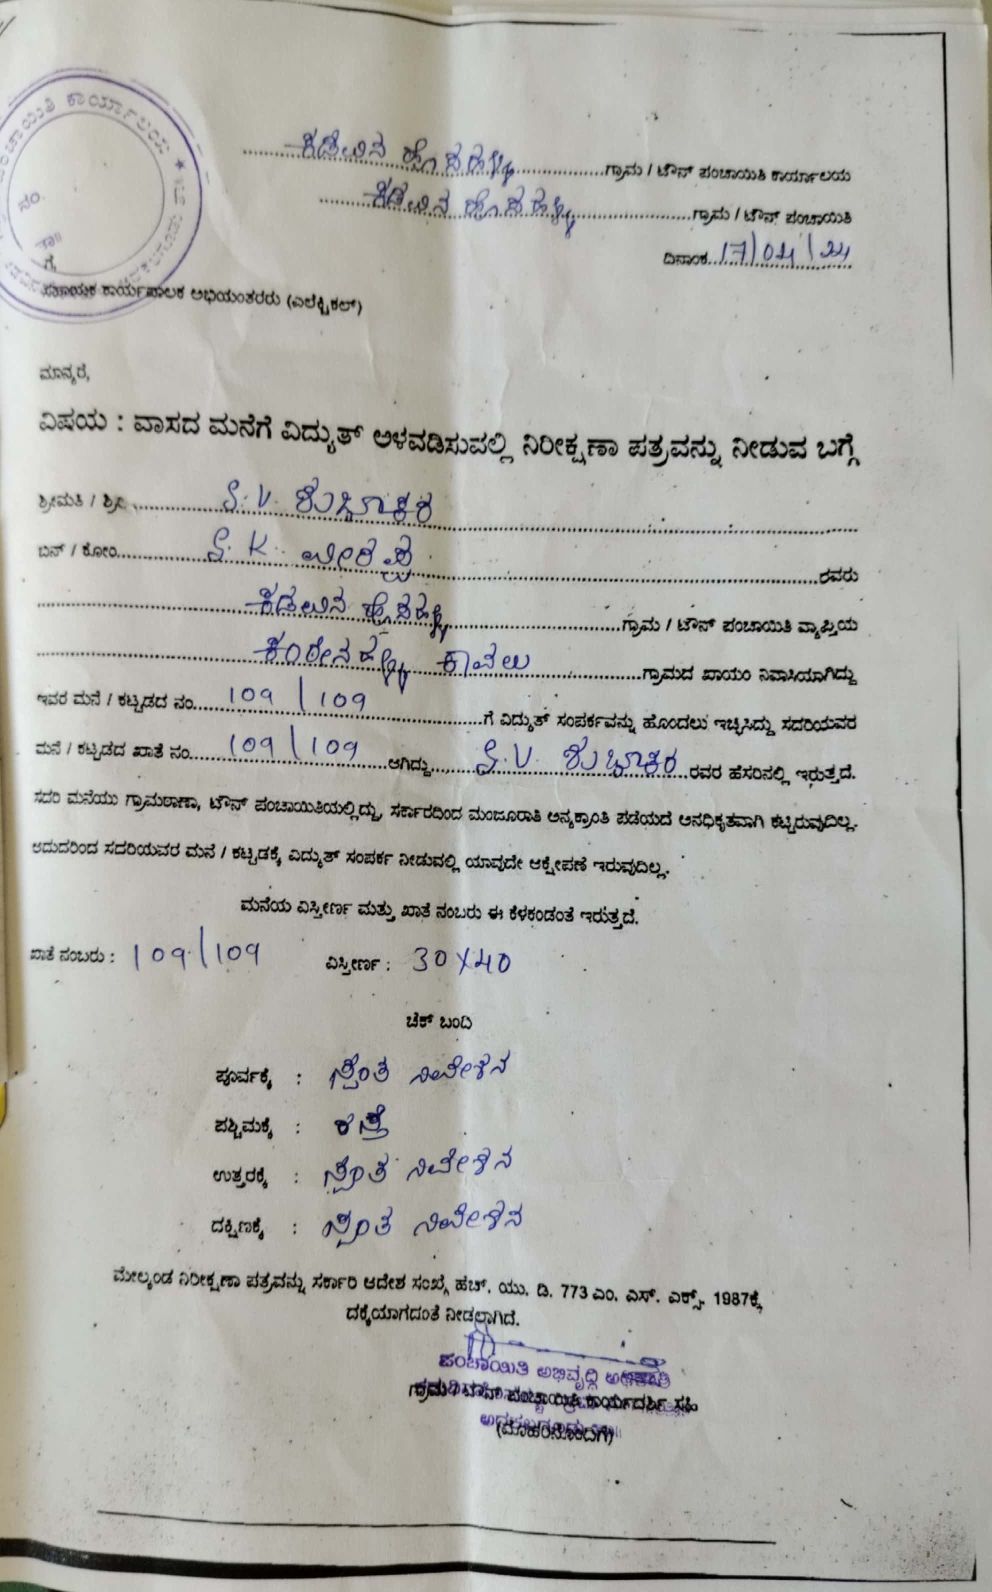 ಕಾರ್ಯಾಲಯ ★
ನಂ.
ತಾ॥
ಕಡಲಿನ ಹೊಸಹಳ್ಳಿ ಗ್ರಾಮ / ಟೌನ್ ಪಂಚಾಯಿತಿ ಕಾರ್ಯಾಲಯ
ಕಡಲಿನ ಹೊಸಹಳ್ಳಿ ಗ್ರಾಮ / ಟೌನ್ ಪಂಚಾಯಿತಿ
ದಿನಾಂಕ 17/04/24
ಗೆ,
ಸಹಾಯಕ ಕಾರ್ಯಪಾಲಕ ಅಭಿಯಂತರರು (ಎಲೆಕ್ಟ್ರಿಕಲ್)
ಮಾನ್ಯರೆ,
ವಿಷಯ : ವಾಸದ ಮನೆಗೆ ವಿದ್ಯುತ್ ಅಳವಡಿಸುವಲ್ಲಿ ನಿರೀಕ್ಷಣಾ ಪತ್ರವನ್ನು ನೀಡುವ ಬಗ್ಗೆ
ಶ್ರೀಮತಿ / ಶ್ರೀ S. V. ಶುಭಾಕರ
ಬಿನ್ / ಕೋಂ S. K. ವೀರಪ್ಪ ರವರು
ಕಡಲಿನ ಹೊಸಹಳ್ಳಿ ಗ್ರಾಮ / ಟೌನ್ ಪಂಚಾಯಿತಿ ವ್ಯಾಪ್ತಿಯ
ಕಂಠೇನಹಳ್ಳಿ ಕಾವಲು ಗ್ರಾಮದ ಖಾಯಂ ನಿವಾಸಿಯಾಗಿದ್ದು
ಇವರ ಮನೆ / ಕಟ್ಟಡದ ನಂ. 109 / 109 ಗೆ ವಿದ್ಯುತ್ ಸಂಪರ್ಕವನ್ನು ಹೊಂದಲು ಇಚ್ಛಿಸಿದ್ದು ಸದರಿಯವರ
ಮನೆ / ಕಟ್ಟಡದ ಖಾತೆ ನಂ. 109 / 109 ಆಗಿದ್ದು S. V. ಶುಭಾಕರ ರವರ ಹೆಸರಿನಲ್ಲಿ ಇರುತ್ತದೆ.
ಸದರಿ ಮನೆಯು ಗ್ರಾಮಠಾಣಾ, ಟೌನ್ ಪಂಚಾಯಿತಿಯಲ್ಲಿದ್ದು, ಸರ್ಕಾರದಿಂದ ಮಂಜೂರಾತಿ ಅನ್ಯಕ್ರಾಂತಿ ಪಡೆಯದೆ ಅನಧಿಕೃತವಾಗಿ ಕಟ್ಟಿರುವುದಿಲ್ಲ.
ಆದುದರಿಂದ ಸದರಿಯವರ ಮನೆ / ಕಟ್ಟಡಕ್ಕೆ ವಿದ್ಯುತ್ ಸಂಪರ್ಕ ನೀಡುವಲ್ಲಿ ಯಾವುದೇ ಆಕ್ಷೇಪಣೆ ಇರುವುದಿಲ್ಲ.
ಮನೆಯ ವಿಸ್ತೀರ್ಣ ಮತ್ತು ಖಾತೆ ನಂಬರು ಈ ಕೆಳಕಂಡಂತೆ ಇರುತ್ತದೆ.
ಖಾತೆ ನಂಬರು : 109/109 ವಿಸ್ತೀರ್ಣ : 30X40
ಚೆಕ್ ಬಂದಿ
ಪೂರ್ವಕ್ಕೆ : ಸ್ವಂತ ನಿವೇಶನ
ಪಶ್ಚಿಮಕ್ಕೆ : ರಸ್ತೆ
ಉತ್ತರಕ್ಕೆ : ಸ್ವಂತ ನಿವೇಶನ
ದಕ್ಷಿಣಕ್ಕೆ : ಸ್ವಂತ ನಿವೇಶನ
ಮೇಲ್ಕಂಡ ನಿರೀಕ್ಷಣಾ ಪತ್ರವನ್ನು ಸರ್ಕಾರಿ ಆದೇಶ ಸಂಖ್ಯೆ ಹೆಚ್. ಯು. ಡಿ. 773 ಎಂ. ಎಸ್. ಎಕ್ಸ್. 1987ಕ್ಕೆ
ದಕ್ಕೆಯಾಗದಂತೆ ನೀಡಲಾಗಿದೆ.
ಪಂಚಾಯಿತಿ ಅಭಿವೃದ್ಧಿ ಅಧಿಕಾರಿ
ಗ್ರಾಮ / ಟೌನ್ ಪಂಚಾಯಿತಿ ಕಾರ್ಯದರ್ಶಿ ಸಹಿ
(ಮೊಹರಿನೊಂದಿಗೆ)